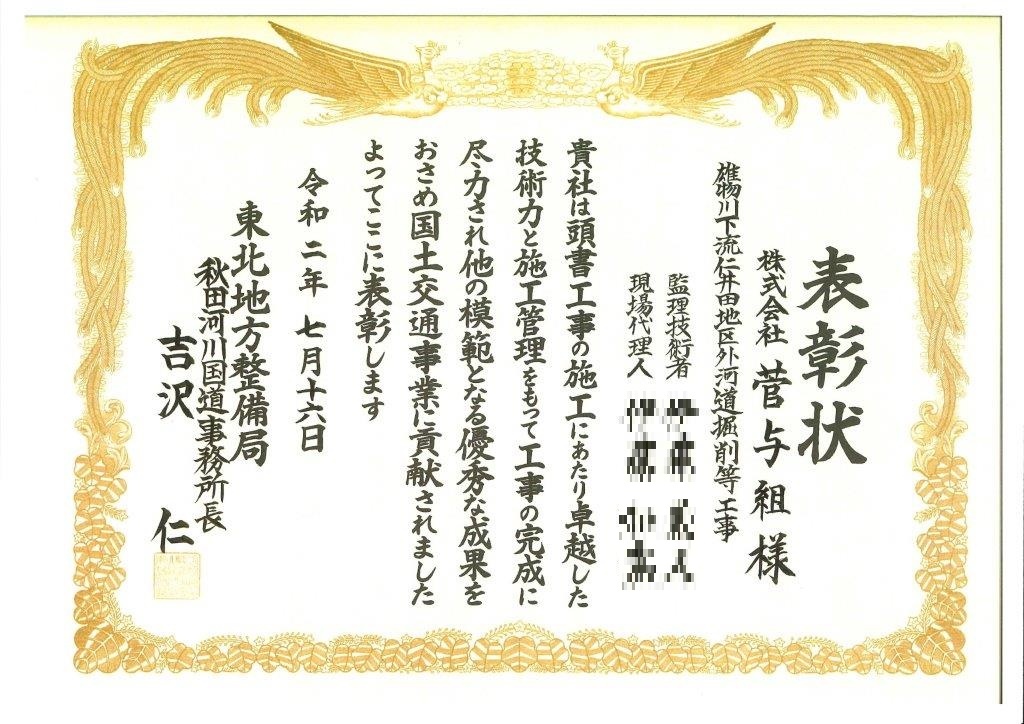 表彰状
株式会社 菅与組 様
雄物川下流仁井田地区外河道掘削等工事
監理技術者
現場代理人
貴社は頭書工事の施工にあたり卓越した
技術力と施工管理をもって工事の完成に
尽力され他の模範となる優秀な成果を
おさめ国土交通事業に貢献されました
よってここに表彰します
令和二年 七月十六日
東北地方整備局
秋田河川国道事務所長
吉沢 仁